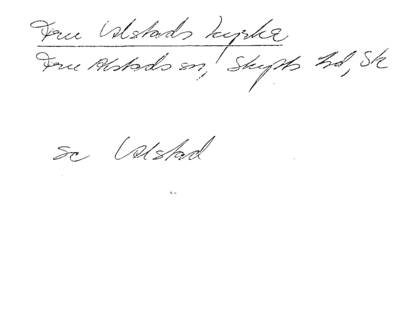 Fru Alstads kyrka
Fru Alstads sn, Skytts hd, Sk
se Alstad